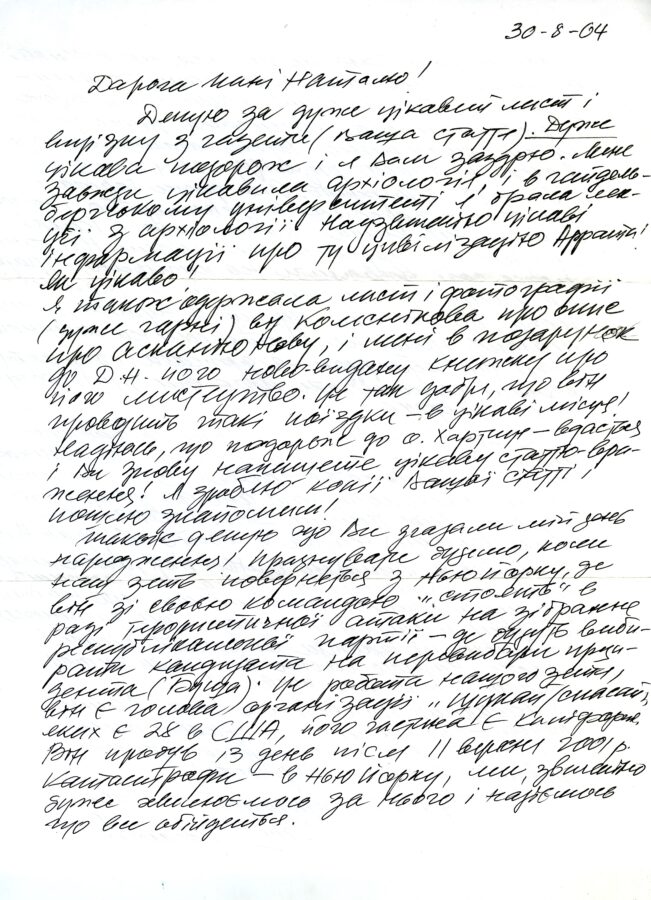 30-8-04
Дорога Пані Наталю!
Дякую за дуже цікавий лист і
вирізку з газети (Ваша стаття). Дуже
цікава подорож і я Вам заздрю. Мене
завжди цікавила архіологія, і в гайдель-
бергському університеті я брала лек-
ції з архіології. Надзвичайно цікаві
інформації про ту цивілізацію Аррата!
Як цікаво!
Я також одержала лист і фотографії
(дуже гарні) від про
про Асканію Нову, і мені в подарунок
до Д.Н. його ново-видану книжку про
його мистецтво. Це так добре, що він
проводить такі поїздки – в цікаві місця!
Надіюсь, що подорож до о. Хортиця – вдасться
і Ви знову напишете цікаву статтю-вра-
ження! Я зроблю копії Вашої статті і
пошлю знайомим!
Також дякую що Ви згадали мій день
народження! Празнувати будемо, коли
наш зять повернеться з Нью Йорку, де
він зі своєю командою "стоять" в
разі терористичної атаки на зібрання
республіканської партії – де будуть виби-
рати кандидата на перевибори прези-
дента (Буша). Це робота нашого зятя,
він є голова організації "Шукай/спасай",
яких є 28 в США, його частина є Каліфорн.
Він пробув 13 день після 11 вересня 2001 р.
катастрофи – в Нью Йорку, ми, звичайно
дуже хвилюємось за нього і надіємось
що все обійдеться.